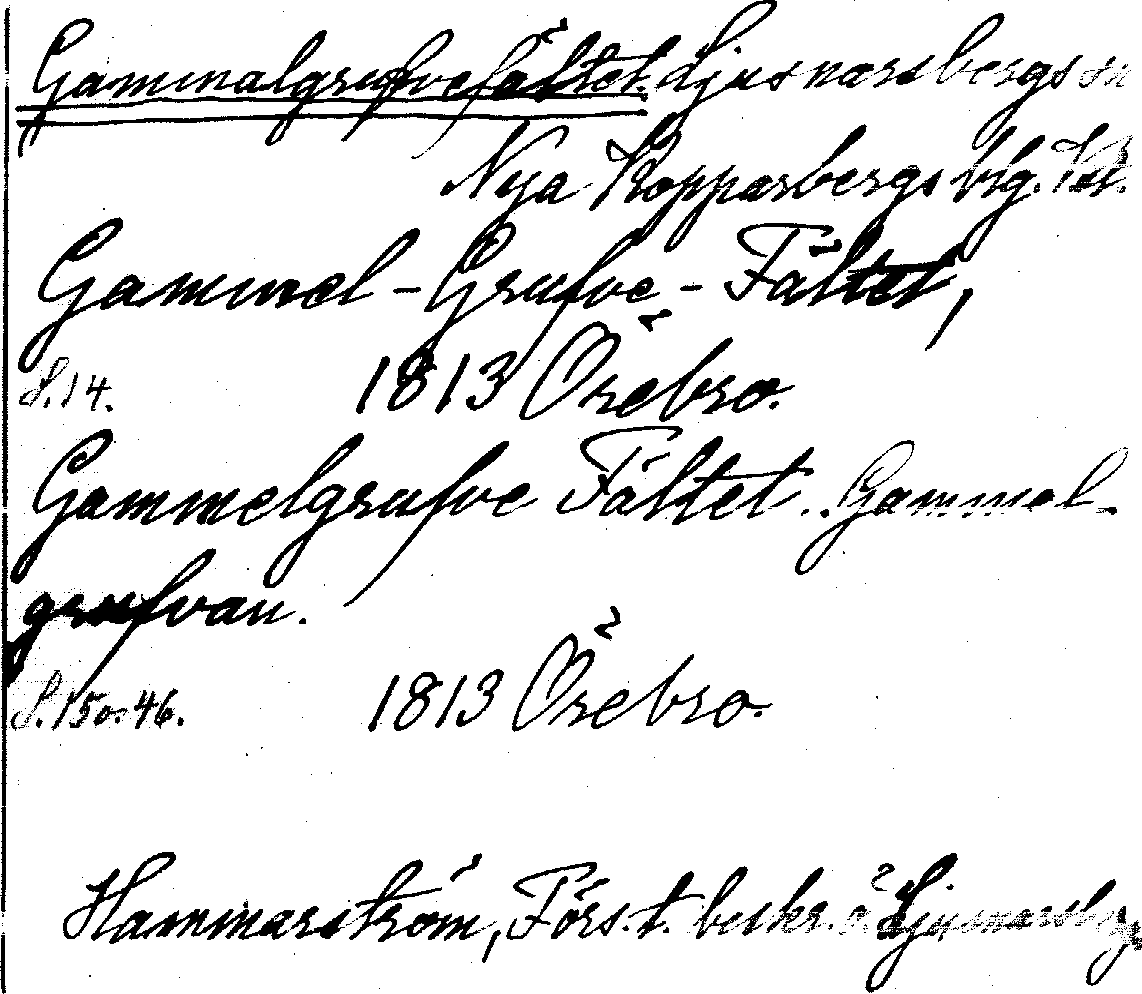 Gammalgrufvefältet. Ljusnarsbergs sn
Nya Kopparbergs blg.
Gammel-Grufve-Fältet,
S.14. 1813 Örebro.
Gammelgrufve Fältet. Gammel-
grufvan.
S.15o.46. 1813 Örebro.
Hammarström, Förs.t. beskr. ö Ljusnarsbg.